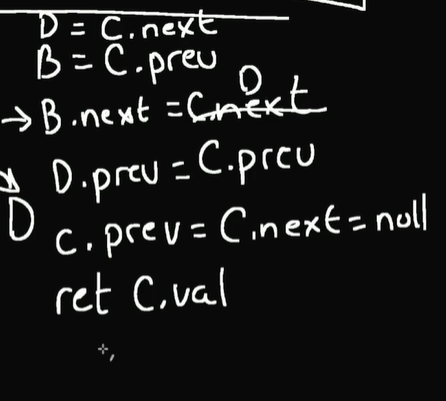 D = C.next
B = C.prev
→ B.next = C.next D
D.prev = C.prev
D
C.prev = C.next = null
ret C.val